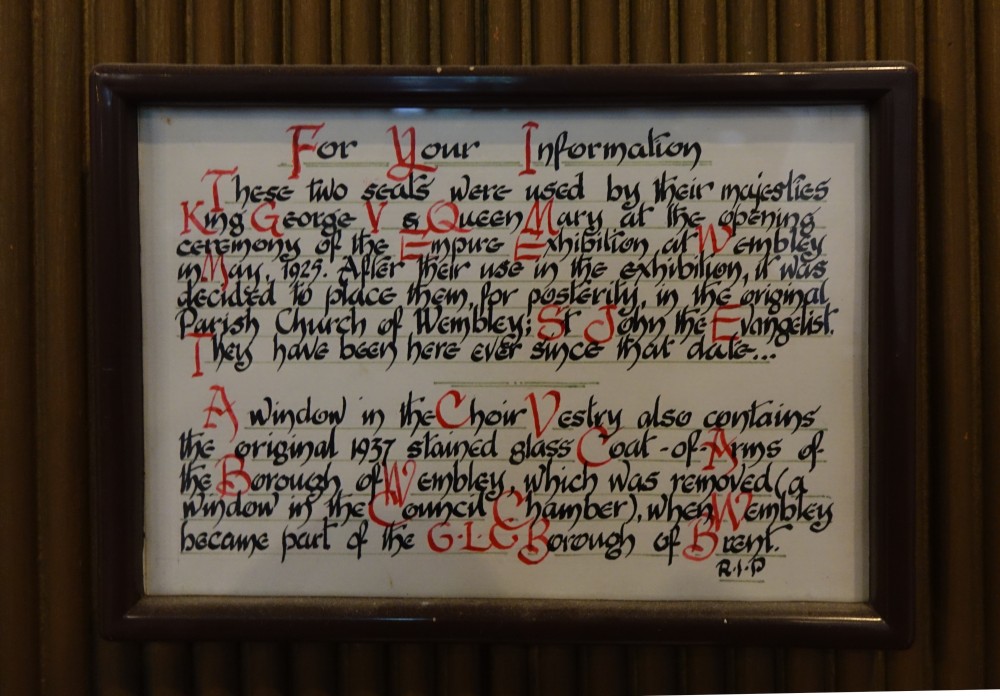 For Your Information
These two seats were used by their majesties
King George V & Queen Mary at the opening
ceremony of the Empire Exhibition, at Wembley
in May, 1925. After their use in the exhibition, it was
decided to place them, for posterity, in the original
Parish Church of Wembley; St John the Evangelist.
They have been here ever since that date...
A window in the Choir Vestry also contains
the original 1937 stained glass Coat-of-Arms of
the Borough of Wembley, which was removed (a
window in the Council Chamber), when Wembley
became part of the G.L.C Borough of Brent.
R.I.P